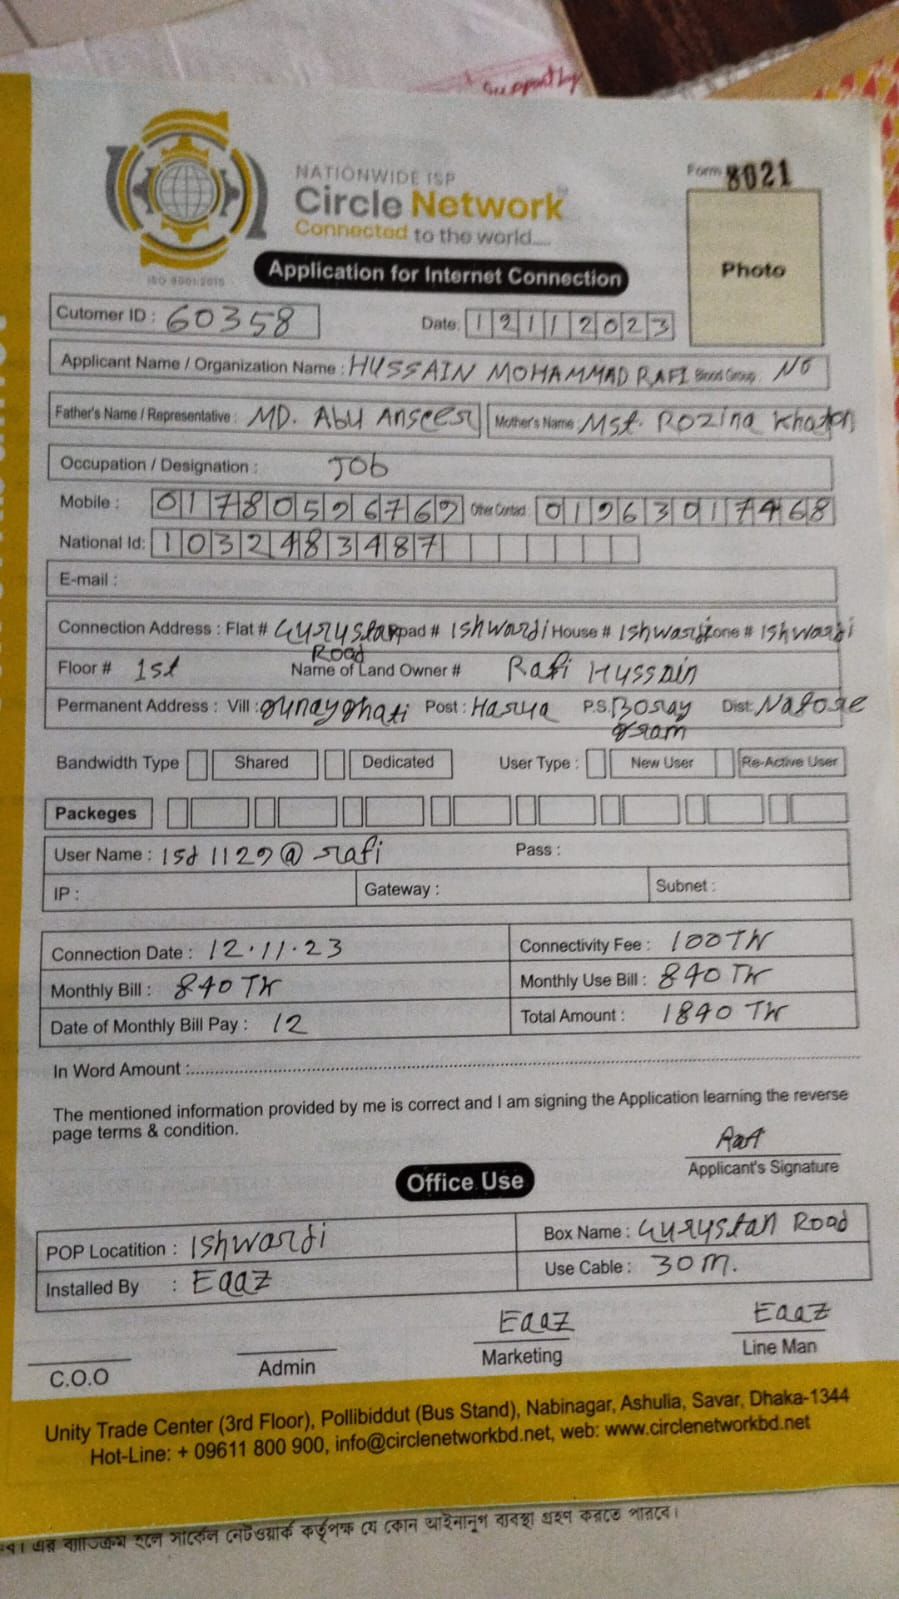 Support by
NATIONWIDE ISP
Circle Network
Connected to the world....
ISO 9001:2015
Form 8021
Photo
Application for Internet Connection
Cutomer ID : 60358
Date: 12112023
Applicant Name / Organization Name : HUSSAIN MOHAMMAD RAFI Blood Group : NO
Father's Name / Representative : MD. Abu Anseer Mother's Name Mst. Rozina Khaton
Occupation / Designation : JOB
Mobile : 01780596769 Other Contact : 01963017468
National Id: 1032483487
E-mail :
Connection Address : Flat # Gurustan Road Road # Ishwardi House # Ishwardi Zone # Ishwardi
Floor # 1st Name of Land Owner # Rafi Hussain
Permanent Address : Vill : gunayghati Post : Harua P.S. Boraygram Dist: Natore
Bandwidth Type Shared Dedicated User Type : New User Re-Active User
Packeges
User Name : isd1129@rafi Pass :
IP : Gateway : Subnet :
Connection Date : 12.11.23 Connectivity Fee : 100 TK
Monthly Bill : 840 TK Monthly Use Bill : 840 TK
Date of Monthly Bill Pay : 12 Total Amount : 1840 TK
In Word Amount :
The mentioned information provided by me is correct and I am signing the Application learning the reverse
page terms & condition.
Rafi
Applicant's Signature
Office Use
POP Locatition : Ishwardi Box Name : Gurustan Road
Installed By : Eaaz Use Cable : 30 m.
Eaaz Eaaz
C.O.O Admin Marketing Line Man
Unity Trade Center (3rd Floor), Pollibiddut (Bus Stand), Nabinagar, Ashulia, Savar, Dhaka-1344
Hot-Line: + 09611 800 900, info@circlenetworkbd.net, web: www.circlenetworkbd.net
এর ব্যতিক্রম হলে সার্কেল নেটওয়ার্ক কর্তৃপক্ষ যে কোন আইনানুগ ব্যবস্থা গ্রহণ করতে পারবে।